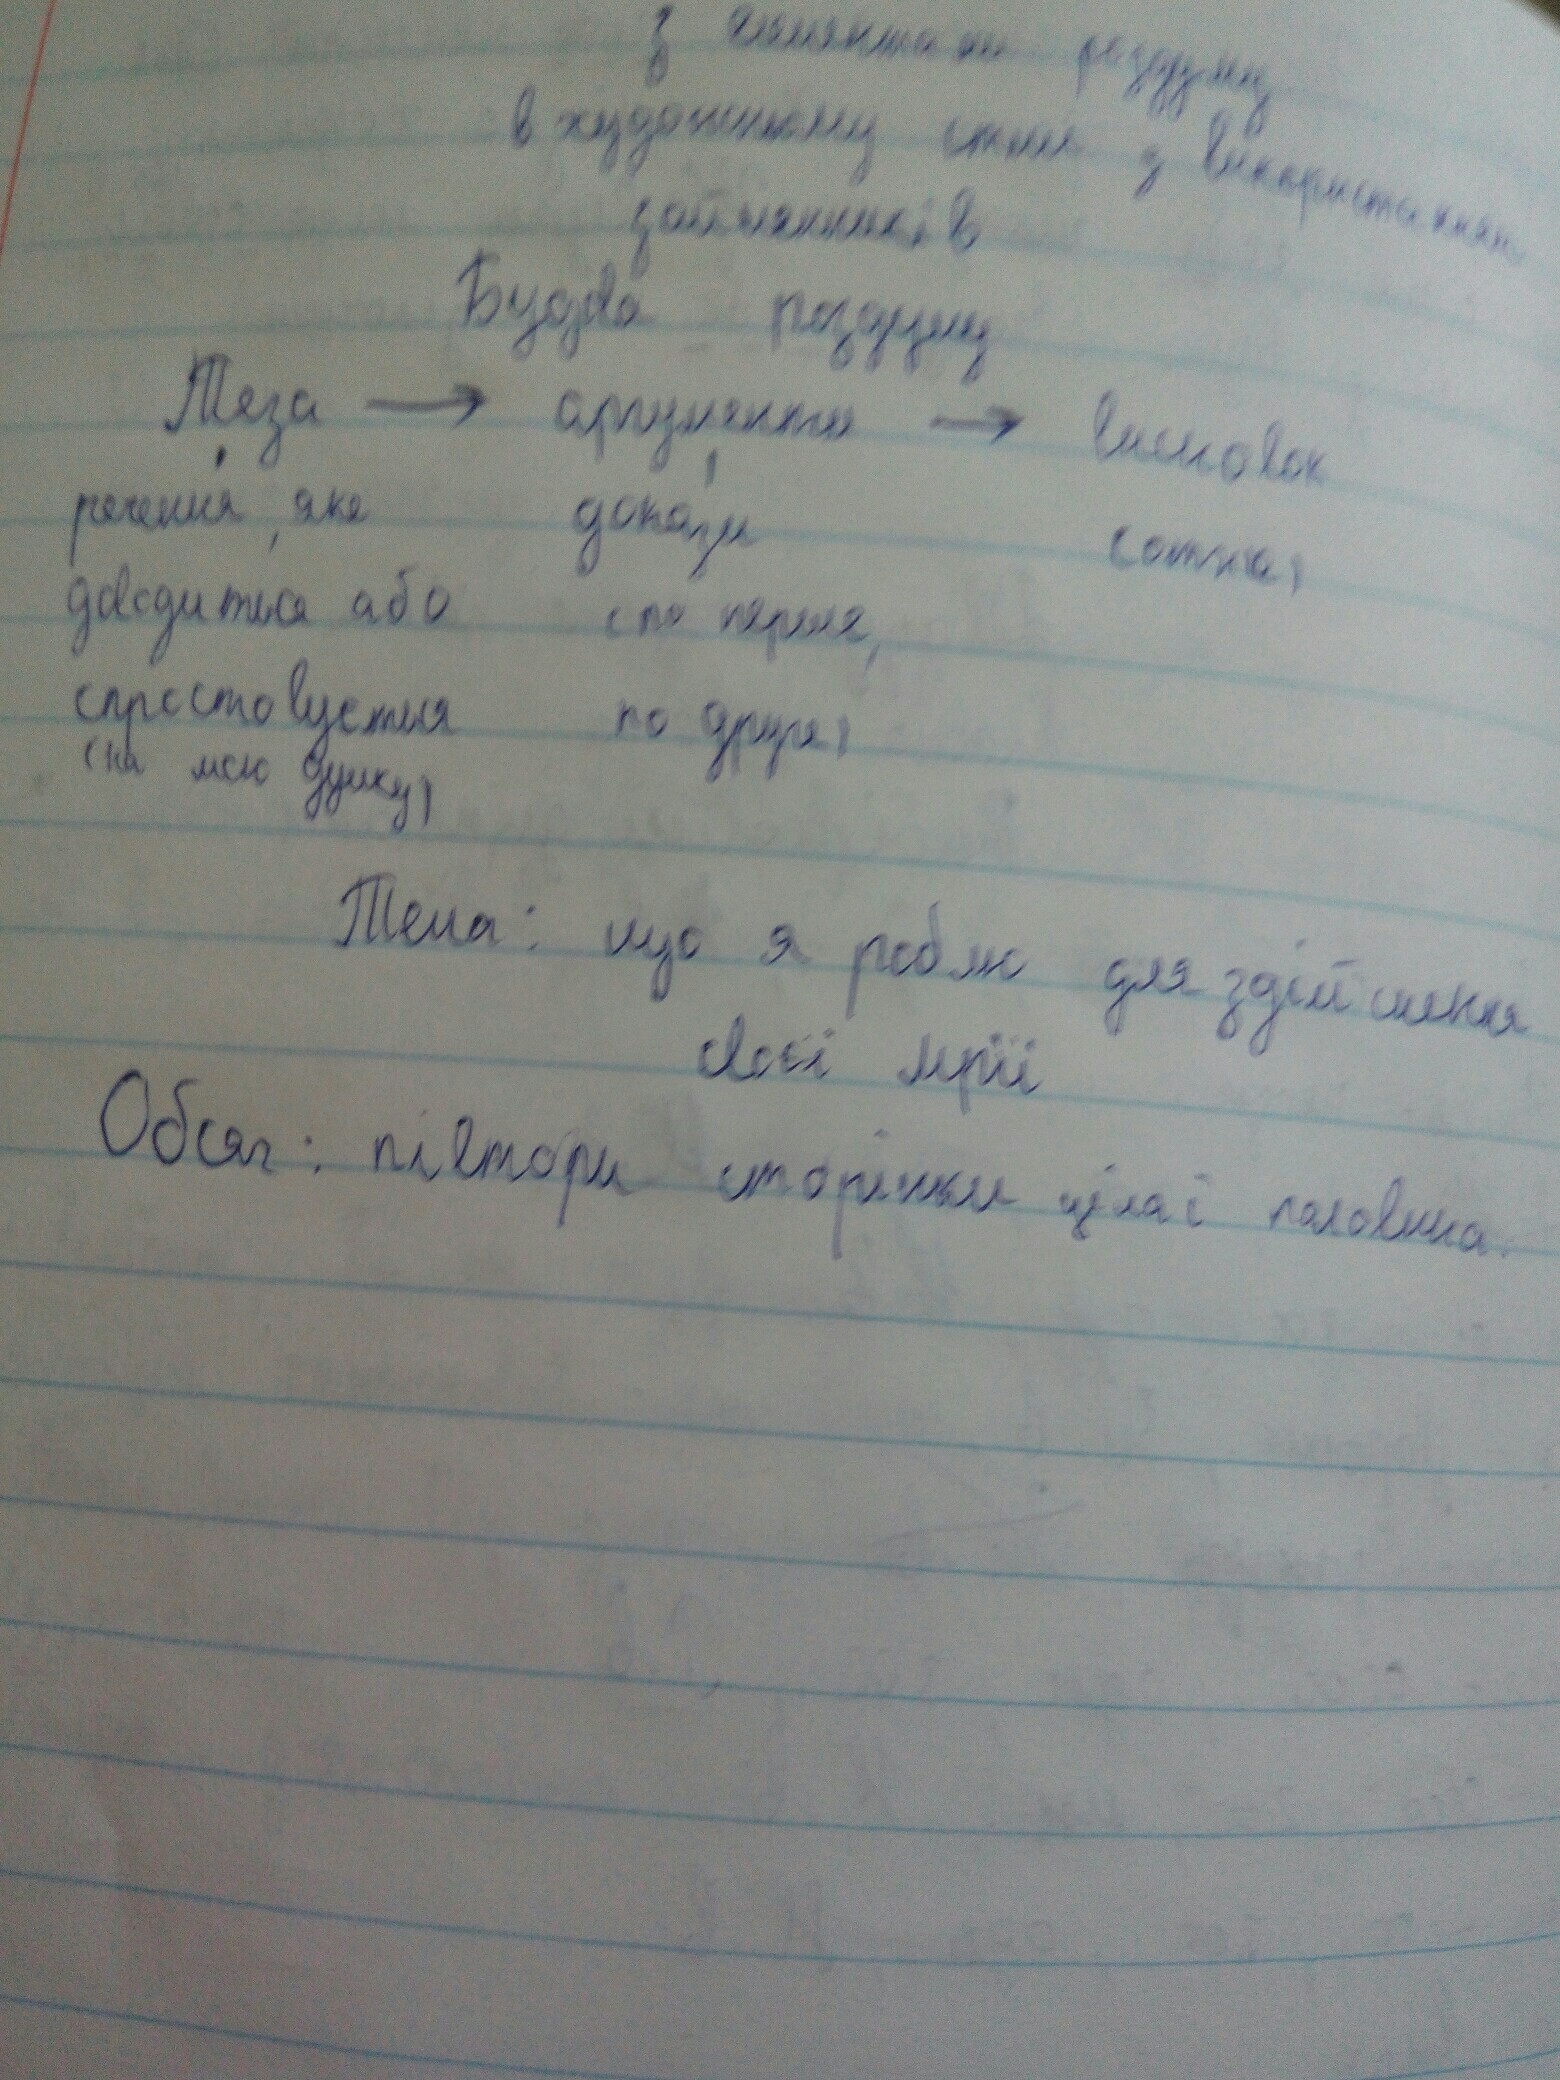 з елементами роздуму
в художньому стилі з використанням
займенників
Будова роздуму
Теза → аргументи → висновок
речення, яке докази (отже)
доводиться або (по перше,
спростовується по друге)
(на мою думку)
Тема: що я роблю для здійснення
своєї мрії
Обсяг: півтори сторінки ціла і половина.